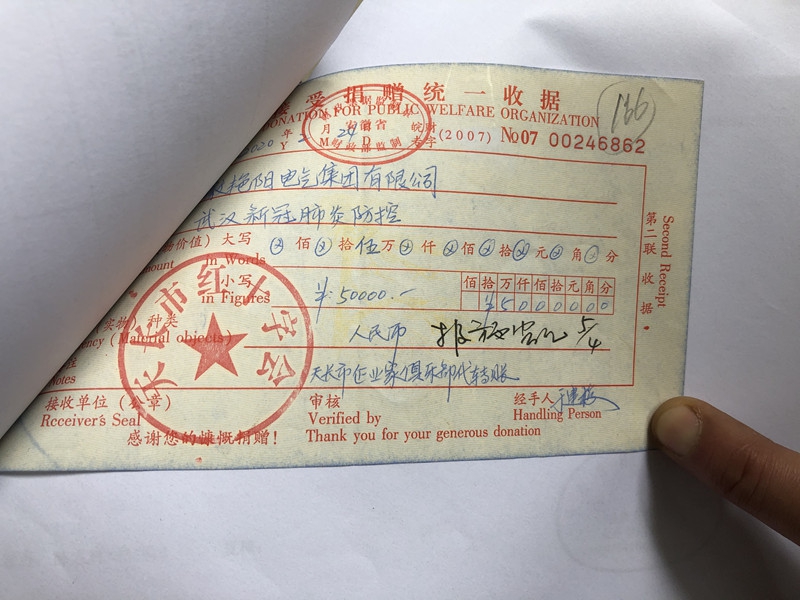 受捐赠统一收据
DONATION FOR PUBLIC WELFARE ORGANIZATION
166
2020 年 2 月 24 日
Y M D
安徽省
财政部监制
皖财专字 (2007) №07 00246862
艳阳电气集团有限公司
武汉新冠肺炎防控
价值) 大写 ⊗ 佰 ⊗ 拾 伍 万 ⊗ 仟 ⊗ 佰 ⊗ 拾 ⊗ 元 ⊗ 角 ⊗ 分
mount in Words
小写
in Figures ¥:50000.-
佰拾万仟佰拾元角分
¥5000000
实物) 种类
ncy (Material objects)
人民币
5/4
天长市企业家俱乐部代转账
Notes
接收单位 (公章)
Rcceiver's Seal
审核
Verified by
经手人
Handling Person
感谢您的慷慨捐赠!
Thank you for your generous donation
天长市红十字会
Second Receipt
第二联 收据